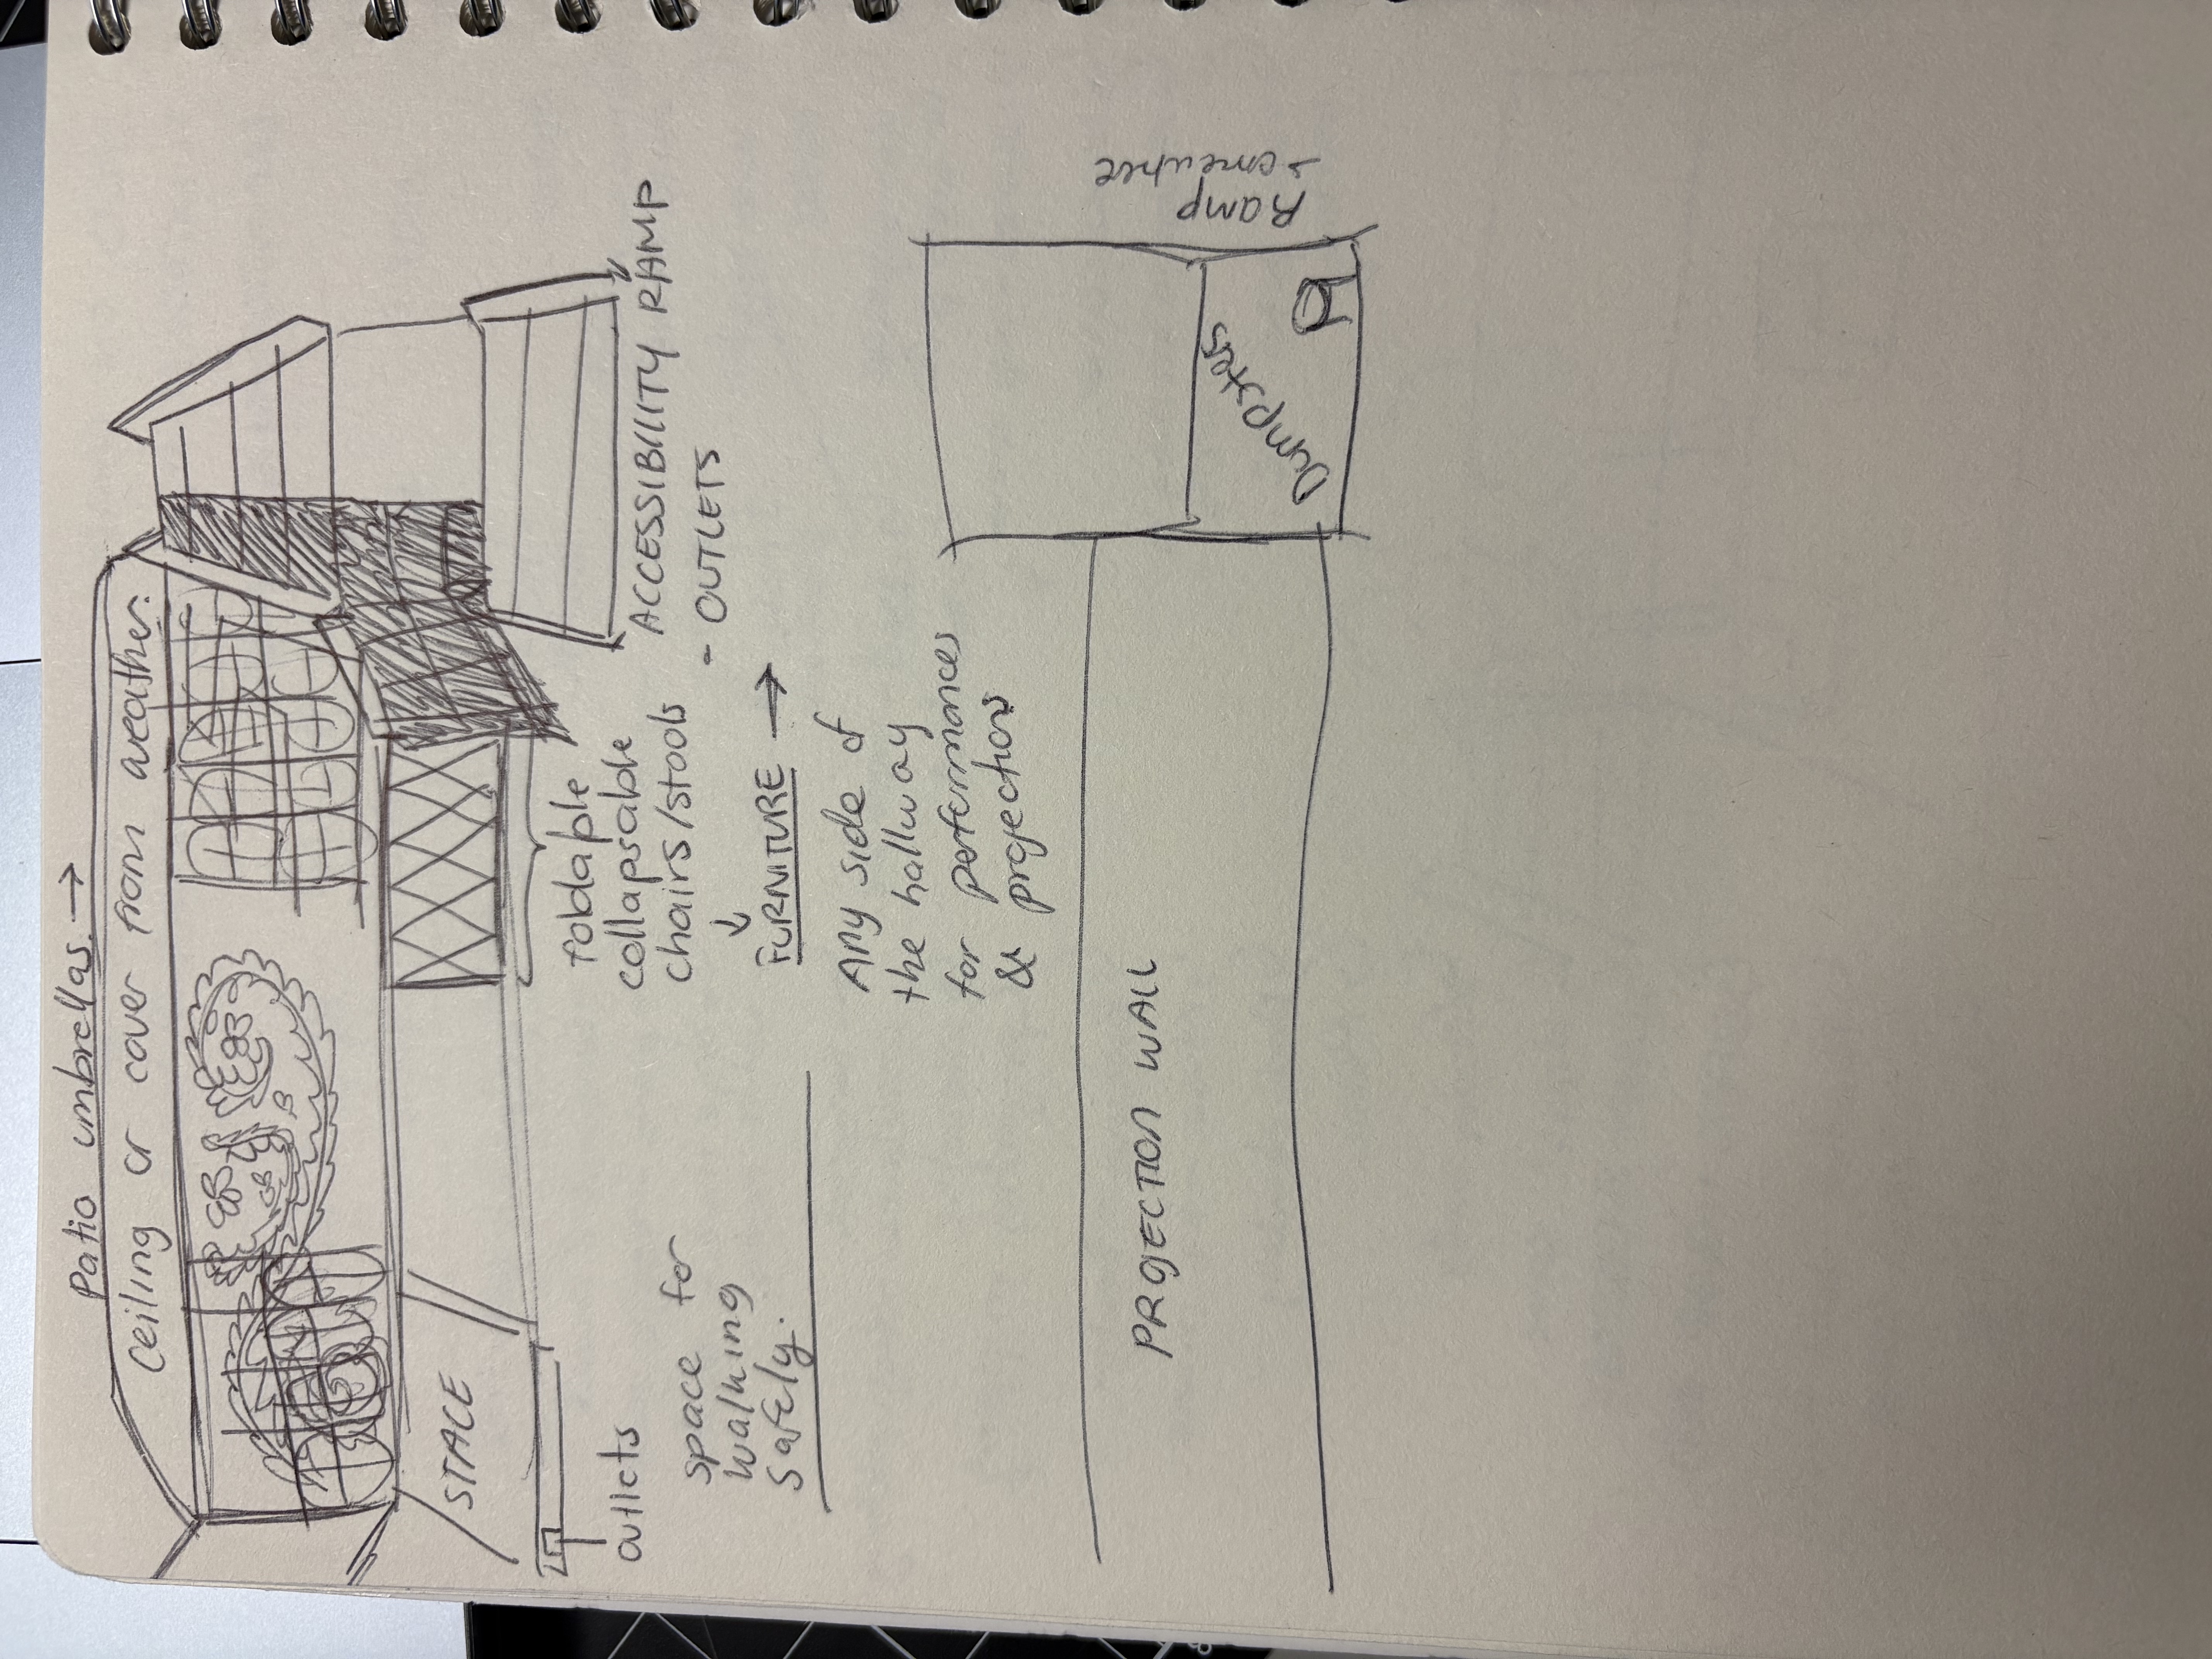 Patio umbrellas. →
Ceiling or cover from weather.
STAGE
outlets
space for
walking
safely.
foldaple
collapsable
chairs/stools
↓
FURNITURE →
ACCESSIBILITY RAMP
- OUTLETS
Any side of
the hallway
for performances
& projections
PROJECTION WALL
Dumpsters
Ramp